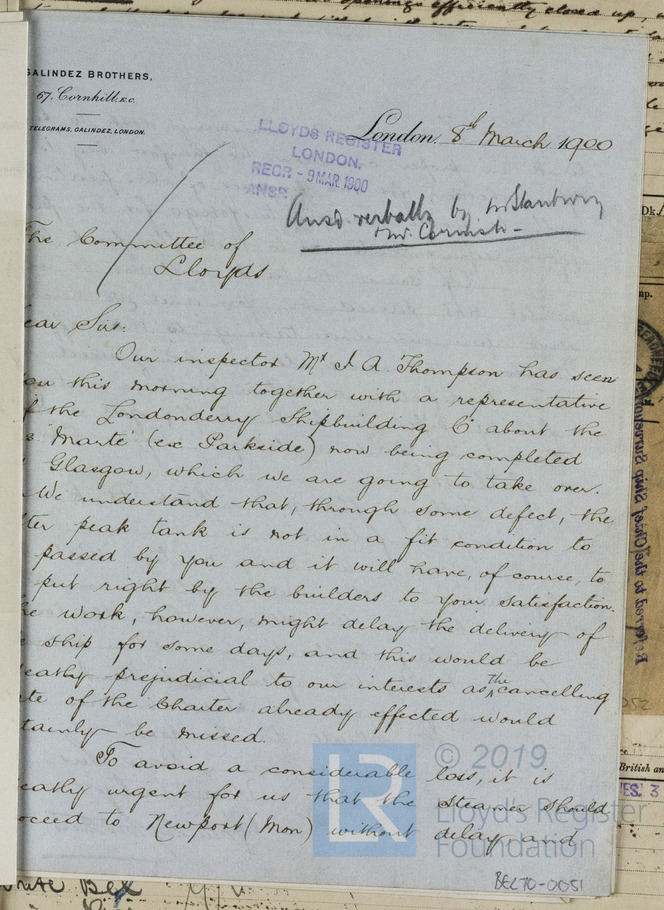 openings efficiently closed up,
GALINDEZ BROTHERS,
67, Cornhill, E.C.
TELEGRAMS, GALINDEZ, LONDON.
London, 8th March 1900
LLOYDS REGISTER
LONDON.
RECR - 9 MAR 1900
ANSR
Ansd verbally by Mr
The Committee of
Lloyds
ear Sir:
Our inspector Mr J A Thompson has seen
ou this morning together with a representative
f the Londonderry Shipbuilding Co about the
s. Marte (ex Parkside) now being completed
Glasgow, which we are going to take over.
We understand that, through some defect, the
ter peak tank is not in a fit condition to
passed by you and it will have, of course, to
put right by the builders to your satisfaction.
he work, however, might delay the delivery of
e ship for some days, and this would be
eatly prejudicial to our interests as the cancelling
ate of the Charter already effected would
tainly be missed.
To avoid a considerable loss, it is
eatly urgent for us that the steamer should
oceed to Newport (Mon) without delay and
LR
© 2019
Lloyd's Register
Foundation
BEL70-0051
Referred to the Chief Ship Surveyor
British an